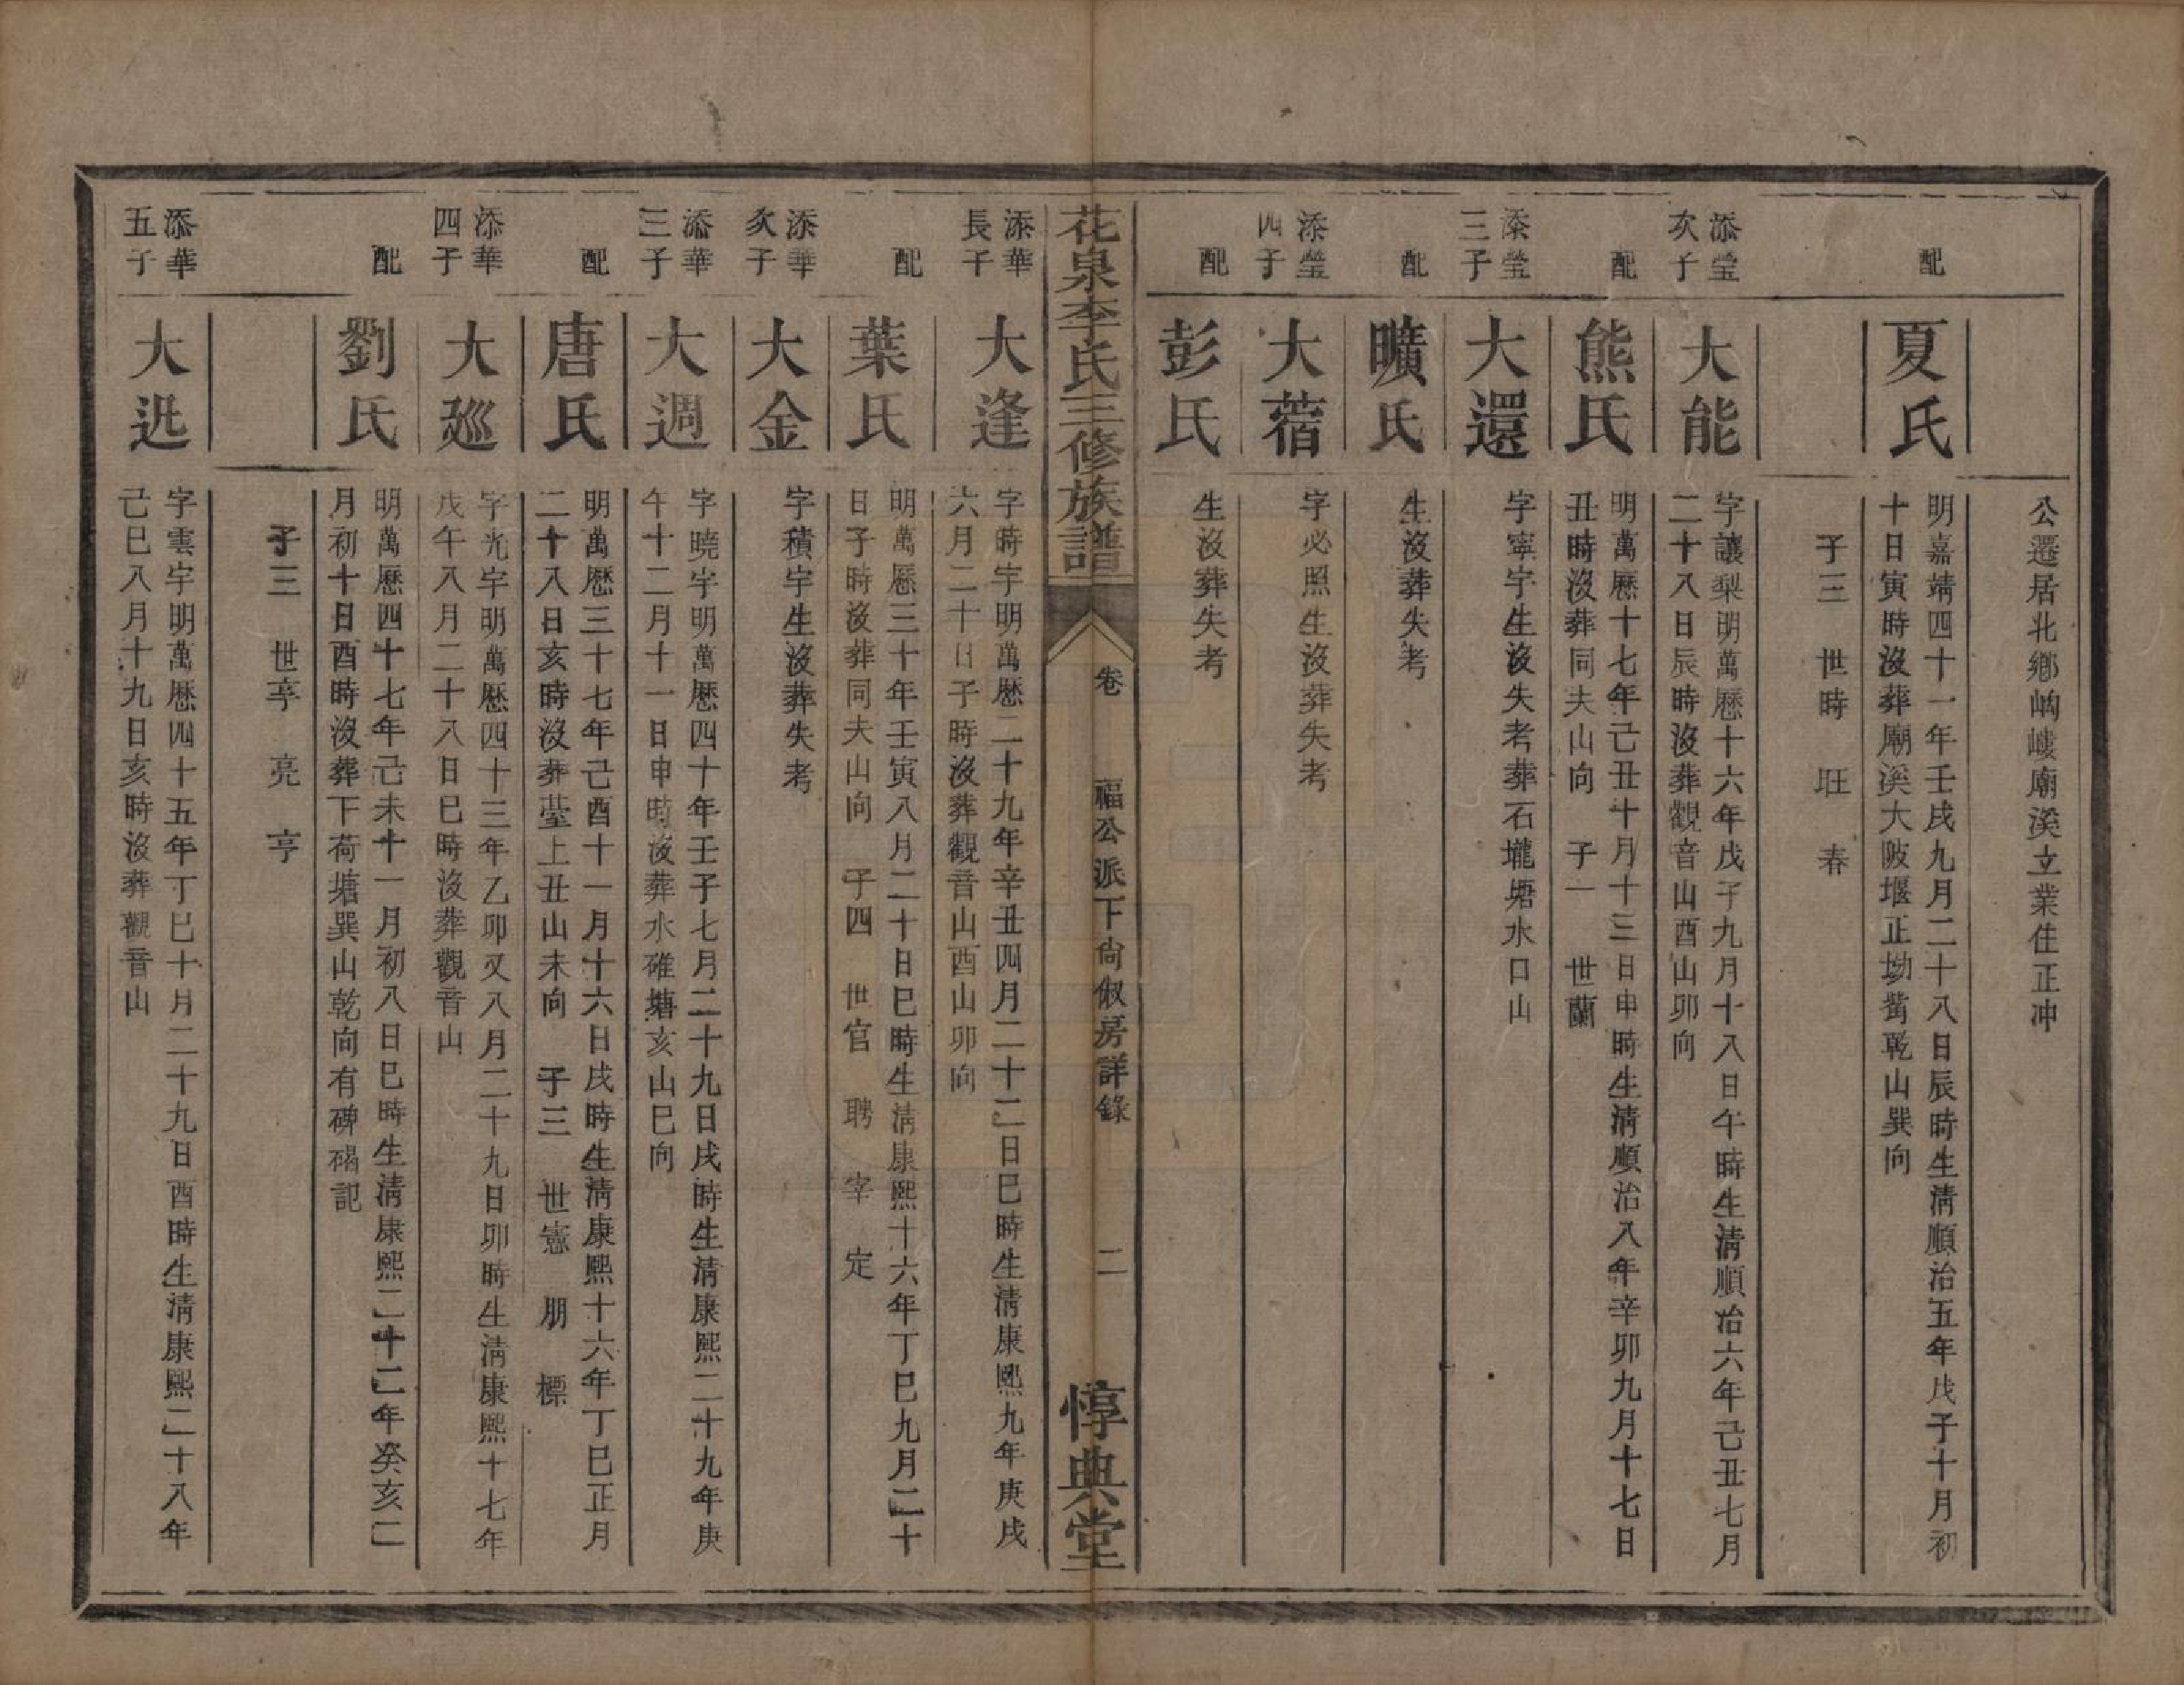 公遷居北鄉岣嶁廟溪立業住正冲
配
夏氏
明嘉靖四十一年壬戌九月二十八日辰時生淸順治五年戊子十月初
十日寅時沒葬廟溪大陂堰正坳背乾山巽向
子三　世時　旺　春
添瑩
次子
大能
字讓梨明萬歷十六年戊子九月十八日午時生淸順治六年己丑七月
二十八日辰時沒葬觀音山酉山卯向
配
熊氏
明萬歷十七年己丑十月十三日申時生淸順治八年辛卯九月十七日
丑時沒葬同夫山向　子一　世蘭
添瑩
三子
大還
字寧宇生沒失考葬石壠塘水口山
配
曠氏
生沒葬失考
添瑩
四子
大蓿
字必照生沒葬失考
配
彭氏
生沒葬失考
花泉李氏三修族譜
卷　福公派下尙俶房詳錄　二
惇典堂
添華
長子
大逢
字時宇明萬歷二十九年辛丑四月二十二日巳時生淸康熙九年庚戌
六月二十日子時沒葬觀音山酉山卯向
配
葉氏
明萬歷三十年壬寅八月二十日巳時生淸康熙十六年丁巳九月二十
日子時沒葬同夫山向　子四　世官　聘　宰　定
添華
次子
大金
字積宇生沒葬失考
添華
三子
大週
字曉宇明萬歷四十年壬子七月二十九日戌時生淸康熙二十九年庚
午十二月十一日申時沒葬水碓塘亥山巳向
配
唐氏
明萬歷三十七年己酉十一月十六日戌時生淸康熙十六年丁巳正月
二十八日亥時沒葬𦲷上丑山未向　子三　世憲　朋　標
添華
四子
大巡
字光宇明萬歷四十三年乙卯又八月二十九日卯時生淸康熙十七年
戊午八月二十八日巳時沒葬觀音山
配
劉氏
明萬歷四十七年己未十一月初八日巳時生淸康熙二十二年癸亥二
月初十日酉時沒葬下荷塘巽山乾向有碑碣記
子三　世享　亮　亨
添華
五子
大迯
字雲宇明萬歷四十五年丁巳十月二十九日酉時生淸康熙二十八年
己巳八月十九日亥時沒葬觀音山